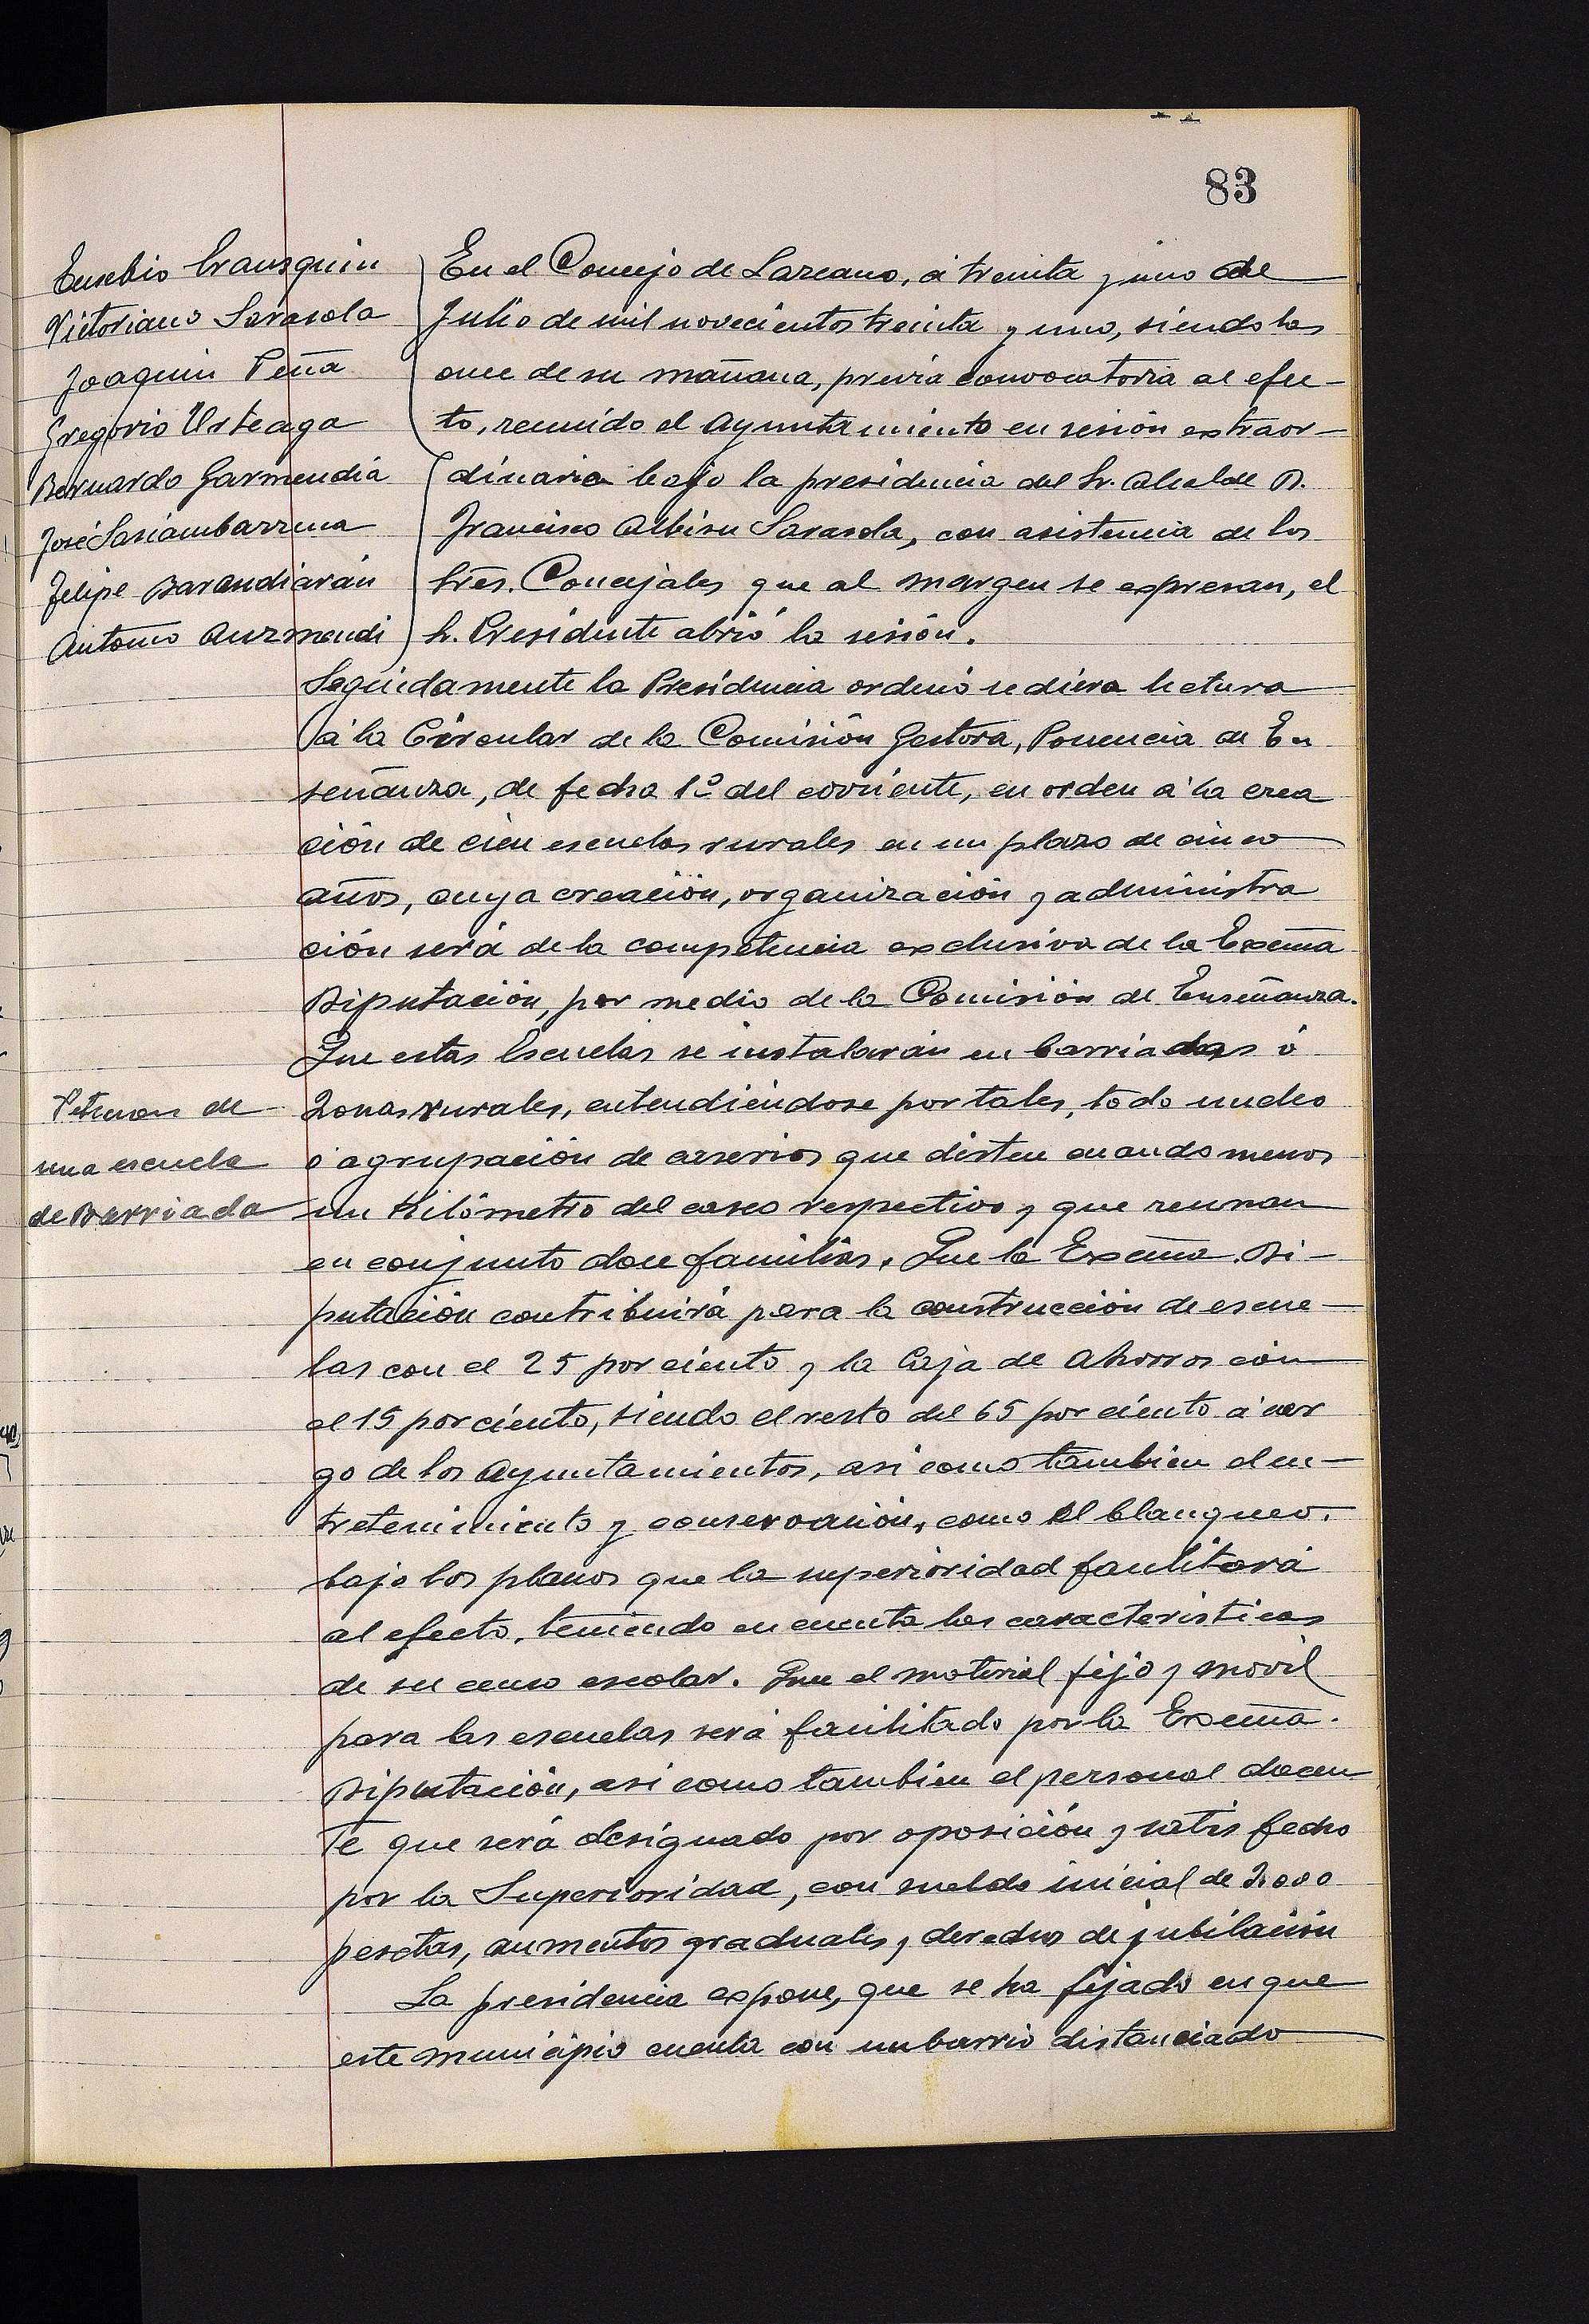 83
Eusebio Irausquin
Victoriano Sarasola
Joaquin Peña
Gregorio Urteaga
Bernardo Garmendia
José Sasiambarrena
Felipe Barandiarán
Antonio Auzmendi
En el Concejo de Lazcano, á treinta y uno de
Julio de mil novecientos treinta y uno, siendo las
once de su mañana, previa convocatoria al efec-
to, reunido el Ayuntamiento en sesión extraor-
dinaria bajo la presidencia del Sr. Alcalde D.
Francisco Albisu Sarasola, con asistencia de los
Sres. Concejales que al margen se expresan, el
Sr. Presidente abrió la sesión.
Seguidamente la Presidencia ordenó se diera lectura
á la Circular de la Comisión Gestora, Ponencia de En
señanza, de fecha 1º del corriente, en orden á la crea
ción de cien escuelas rurales en un plazo de cinco
años, cuya creación, organización y administra
ción será de la competencia exclusiva de la Excma
Diputación, por medio de la Comisión de Enseñanza.
Que estas Escuelas se instalarán en barriadas ó
Zonas rurales, entendiéndose por tales, todo nucleo
ó agrupación de caserios que disten cuando menos
un Kilómetro del casco respectivo y que reunan
en conjunto doce familias. Que la Excma. Di-
putación contribuirá para la construcción de escue-
las con el 25 por ciento y la Caja de Ahorros con
el 15 por ciento, siendo el resto del 65 por ciento á car
go de los Ayuntamientos, asi como tambien el en-
tretenimiento y conservación, como el blanqueo.
bajo los planos que la superioridad facilitará
al efecto, teniendo en cuenta las caracteristicas
de su censo escolar. Que el material fijo y movil
para las escuelas será facilitado por la Excma.
Diputación, asi como tambien el personal docen
te que será designado por oposición y satisfecho
por la Superioridad, con sueldo inicial de 3.000
pesetas, aumentos graduales y derechos de jubilación
La presidencia expone, que se ha fijado en que
este municipio cuenta con un barrio distanciado
de
una escuela
de Barriada